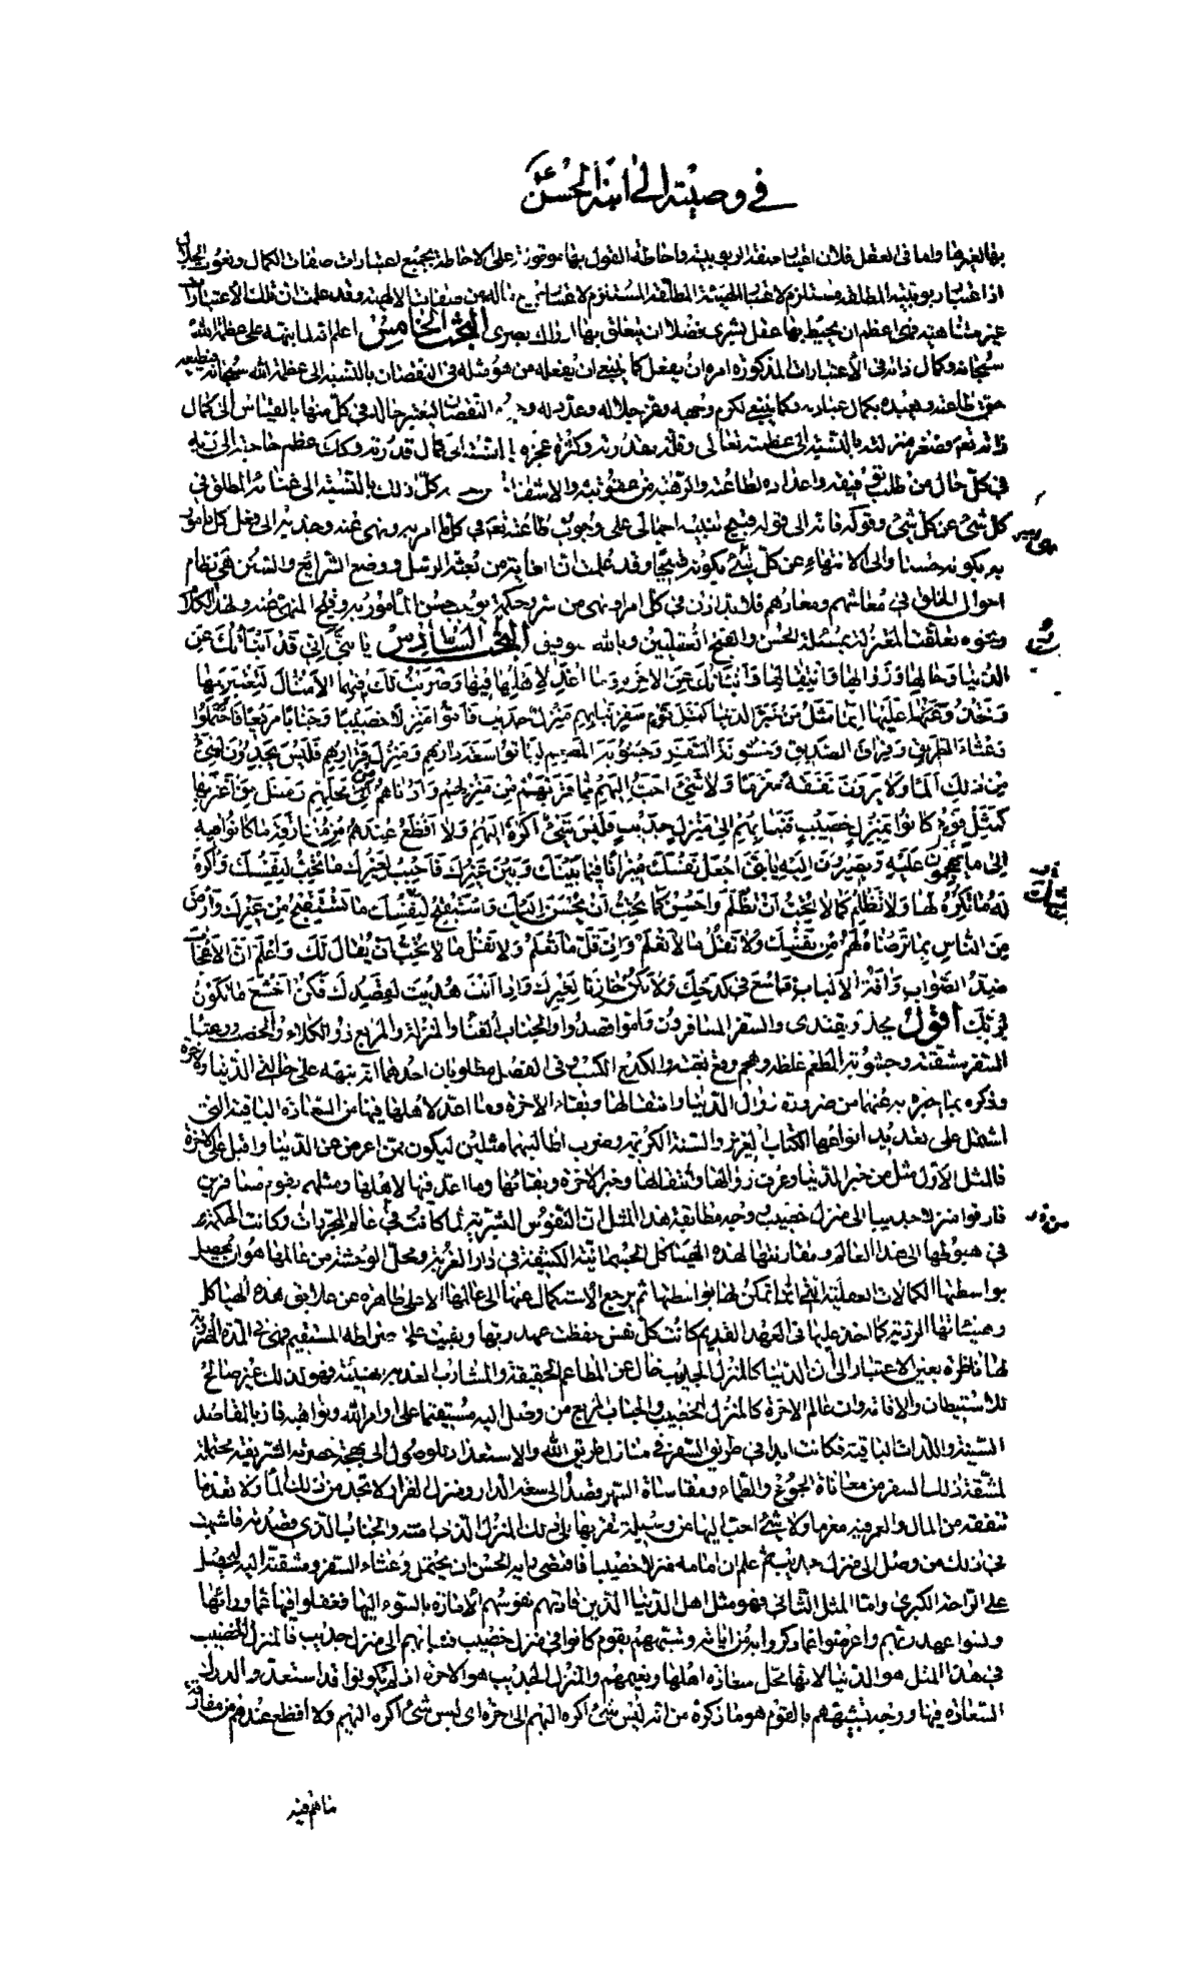 في وصيته الى ابنه الحسن ع
بقائلغيرها واما في العقل فلان اعتبار صفة الربوبية واحاطة القول بها موقوفة على الاحاطة بجميع اعتبارات صفات الكمال ونعوت الجلال
اذ اعتبار ربوبيته المطلقة مستلزم لاعتبار الهيئة المطلقة المستلزم لاعتبار جميع ماله من صفات الالهية وقد علمت ان تلك الاعتبارات
غير متناهية فهى اعظم ان يحيط بها عقل بشرى فضلا ان يتعلق بها ادراك بصرى البحث الخامس اعلم انه لما نبهه على عظمة الله
سبحانه وكمال ذاته في الاعتبارات المذكورة امره ان يفعل كما ينبغى ان يفعله من هو مثله في النقصان بالنسبة الى عظمة الله سبحانه
حق طاعته وعبده بكمال عبادته وكما ينبغي لكرم وجهه وعز جلاله
ذاته تعالى وصغر منزلته بالنسبة الى عظمته تعالى وقلة مقدرته وكثرة عجزه بالنسبة الى كمال قدرته وكذلك عظم حاجته الى ربه
في كل حال من طلب توفيقه واعداده لطاعته والرهبة من عقوبته والاشفاق من سخطه كل ذلك بالنسبة الى غنائه المطلق في
كل شئ عن كل شئ وقوله فانه الى قوله قبيح تنبيه اجمالى على وجوب طاعته تعالى في كل ما امر به ونهى عنه وجذبه الى فعل كل مامور
به بكونه حسنا والى الانتهاء عن كل شئ بكونه قبيحا وقد علمت ان الغاية من بعثة الرسل ووضع الشرايع والسنن هى نظام
احوال الخلق في معاشهم ومعادهم فلابد اذن في كل امر او نهى من سر وحكمة يوجب حسن المأمور به وقبح المنهى عنه ولهذا الكلام
ونحوه تعلقت المعتزلة بمسئلة الحسن والقبح العقليين وبالله التوفيق البحث السادس يا بنى اني قد انبأتك عن
الدنيا وحالها وزوالها وانتقالها وانبأتك عن الاخرة وما اعد لاهلها فيها وضربت لك فيهما الامثال لتعتبر بها
وتحذو عليها انما مثل من خبر الدنيا كمثل قوم سفر نبا بهم منزل جديب فاموا منزلا خصيبا وجنابا مريعا فاحتملوا
وعثاء الطريق وفراق الصديق وخشونة السفر وجشوبة المطعم ليأتوا سعة دارهم ومنزل قرارهم فليس يجدون لشئ
من ذلك الما ولا يرون نفقة مغرما ولا شئ احب اليهم مما قربهم من منزلهم وادناهم من محلهم ومثل من اغتر بها
كمثل قوم كانوا بمنزل خصيب فنبا بهم الى منزل جديب فليس شئ اكره اليهم ولا افظع عندهم من مفارقة ما كانوا فيه
الى ما يهجمون عليه ويصيرون اليه يا بنى اجعل نفسك ميزانا فيما بينك وبين غيرك فاحبب لغيرك ما تحب لنفسك واكره
له ما تكره لها ولا تظلم كما لا تحب ان تظلم واحسن كما تحب ان يحسن اليك واستقبح لنفسك ما تستقبح من غيرك وارض
من الناس بما ترضاه لهم من نفسك ولا تقل ما لا تعلم وان قل ما تعلم ولا تقل ما لا تحب ان يقال لك واعلم ان الاعجاب
ضد الصواب وافة الالباب فاسع في كدحك ولا تكن خازنا لغيرك واذا انت هديت لقصدك فكن اخشع ما تكون
لربك اقول يحذو يقتدى والسفر المسافرون واموا قصدوا والجناب الفناء والمنزلة والمريع ذو الكلاء والخصب ووعثاء
السفر مشقته وجشوبة المطعم غلظه وهجم وقع بغتة والكدح الكسب وفي الفصل مطلوبان احدهما انه نبهه على حالتي الدنيا والاخرة
وذكره بما اخبره به عنهما من ضرورة زوال الدنيا وانتقالها وبقاء الاخرة وما اعد لاهلها فيها من السعادة الباقية التي
اشتمل على تعديد انواعها الكتاب العزيز والسنة الكريمة وضرب لطالبيهما مثلين ليكون ممن اعرض عن الدنيا واقبل على الاخرة
فالمثل الاول مثل من خبر الدنيا وعرف زوالها وانتقالها وخبر الاخرة وبقائها وما اعد فيها لاهلها ومثلهم بقوم مسافرين
فارقوا منزلا جديبا الى منزل خصيب ووجه مطابقة هذا المثل ان النفوس البشرية لما كانت في عالم المجردات وكانت الحكمة
في هبوطها الى هذا العالم ومقارنتها لهذه الهياكل الجسمانية الكثيفة في دار الغربة ومحل الوحشة من عالمها هو ان يحصل
بواسطتها الكمالات العقلية التي انما تمكن لها بواسطتها ثم يرجع الاستكمال عنها الى عالمها الاعلى طاهرة عن علايق هذه الهياكل
وهيئاتها الردئية كما اخذ عليها في العهد القديم كانت كل نفس حفظت عهد ربها وبقيت على صراطه المستقيم في المدة المضروبة
لها ناظرة بعين الاعتبار الى ان الدنيا كالمنزل الجديب خال عن المطاعم الحقيقة والمشارب العذبة الهنيئة فهو لذلك غير صالح
للاستيطان والاقامة وان عالم الاخرة كالمنزل الخصيب والجناب المريع من وصل اليه مستقيما على اوامر الله ونواهيه فاز بالمقاصد
السنية واللذات الباقية فكانت ابدا في طريق السفر في منازل طريق الله والاستعداد للوصول الى بهجة حضرته الشريفة محتملة
لمشقة ذلك السفر من معاناة الجوع والظماء ومقاساة السهر وقصدا الى سعة الدار ومنزل القرار لا تجد من ذلك الما ولا تعد ما
تنفقه من المال والعمر فيه مغرما ولا شئ احب اليها من وسيلة تقربها الى ذلك المنزل الذي امته والجناب الذي قصدته فاشبهت
في ذلك من وصل الى منزل جديب ثم علم ان امامه منزلا خصيبا فاقتضى رايه الحسن ان يحتمل وعثاء السفر ومشقته اليه ليحصل
على الراحة الكبرى واما المثل الثاني فهو مثل اهل الدنيا الذين قادتهم نفوسهم الامارة بالسوء اليها فغفلوا فيها عما ورائها
ونسوا عهد ربهم واعرضوا عما ذكروا به من اياته وشبههم بقوم كانوا في منزل خصيب فنبا بهم الى منزل جديب فالمنزل الخصيب
في هذا المثل هو الدنيا لانها محل سعادة اهلها ونعيمهم والمنزل الجديب هو الاخرة اذ لم يكونوا قد استعدوا لدرك
السعادة فيها ووجه تشبيههم بالقوم هو ما ذكره من انه ليس شئ اكره اليهم الى اخره اى ليس شئ اكره اليهم ولا افظع عندهم من مفارقة
ما هم فيه